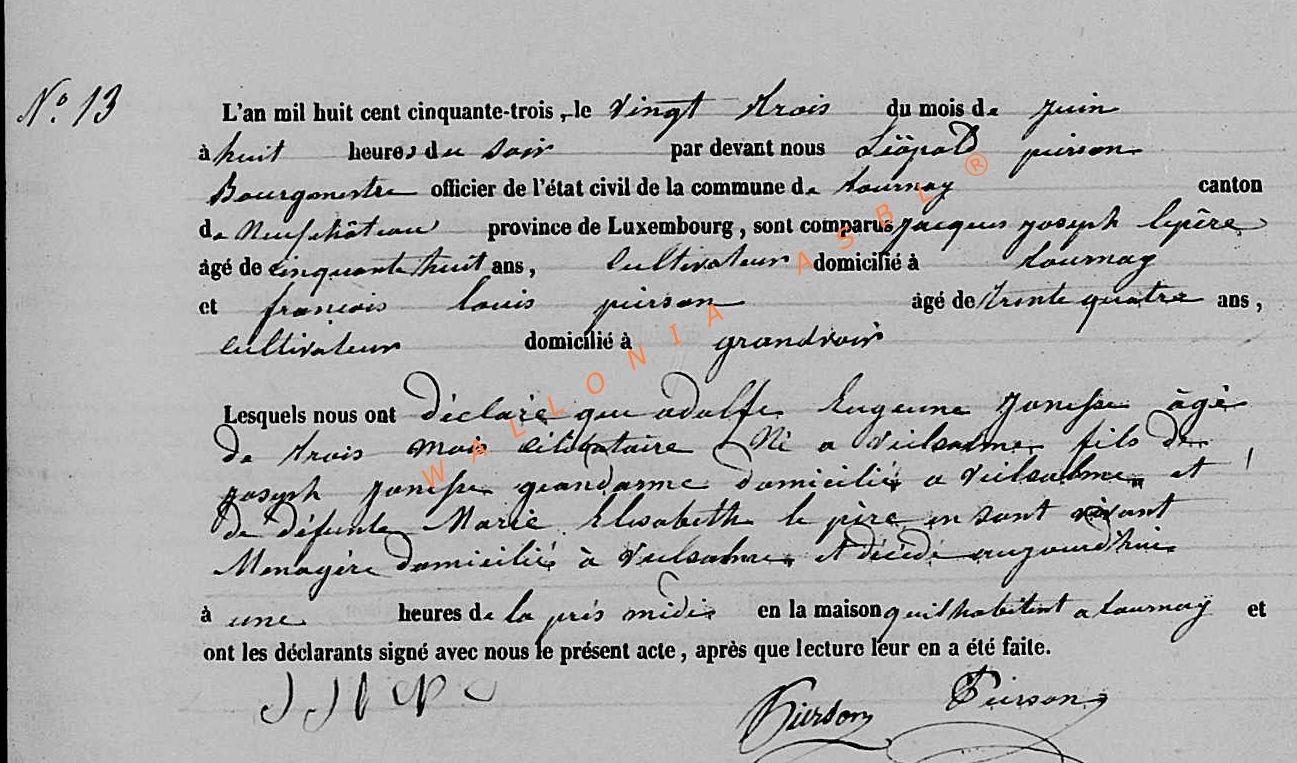 N° 13
L'an mil huit cent cinquante-trois, le vingt trois du mois de juin
à huit heures du soir par devant nous Léopold pierson
Bourgmestre officier de l'état civil de la commune de tournay canton
de Neufchâteau province de Luxembourg, sont comparus jacques joseph lepère
âgé de cinquante huit ans, cultivateur domicilié à tournay
et françois louis pierson âgé de trente quatre ans,
cultivateur domicilié à grandvoir
Lesquels nous ont déclaré que adolfe Eugenne âgé
de trois mois Né a vielsalme fils de
joseph giandarme domicilié a vielsalme et
de défunte Marie Elisabeth le père en sont vivant
Menagère domicilié à vielsalme et décédé aujourd'hui
à une heures de la près midi en la maison qu'il habitent a tournay et
ont les déclarants signé avec nous le présent acte, après que lecture leur en a été faite.
Pierson Pierson
WALLONIA ASBL ®